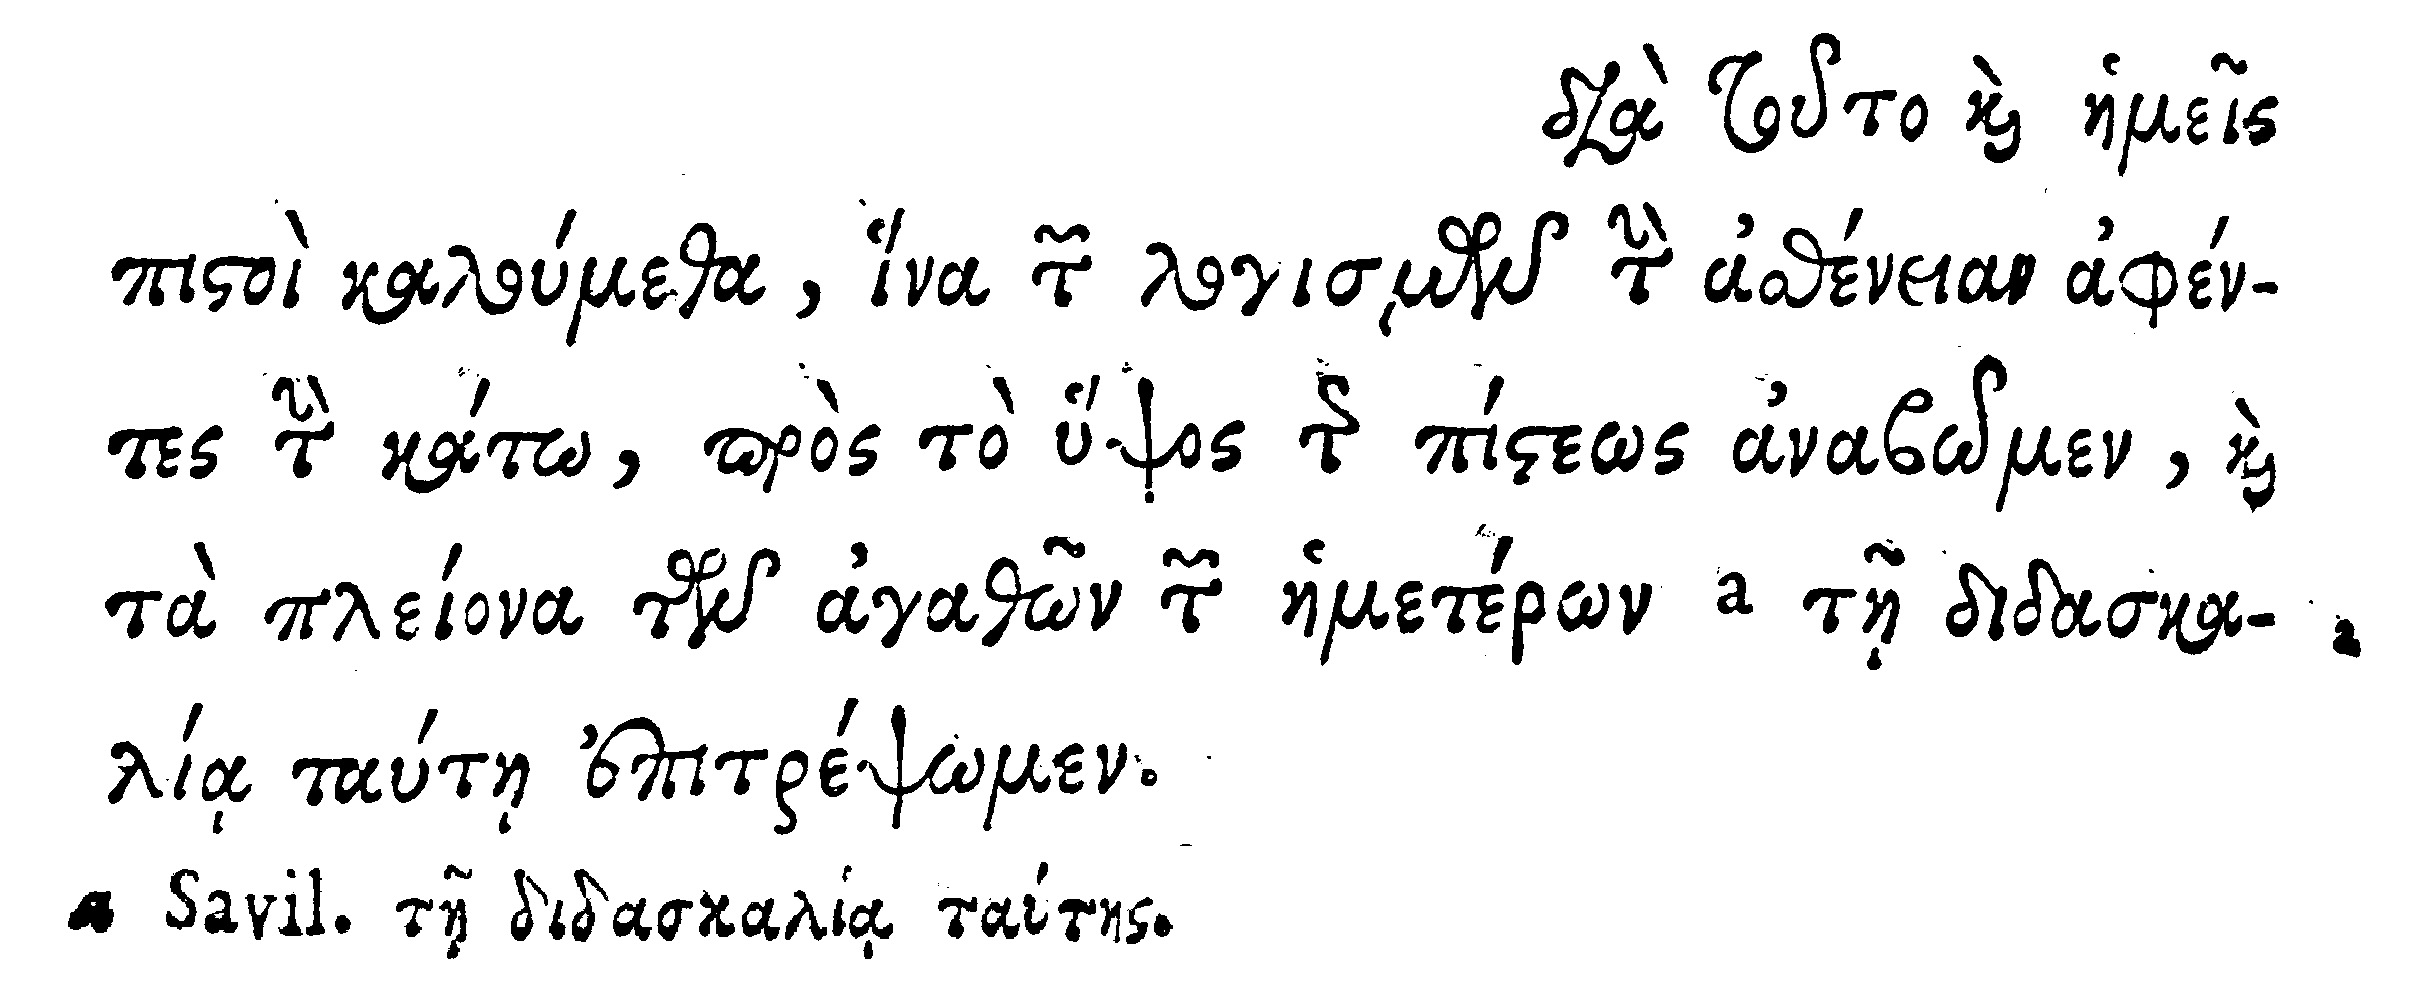 διὰ τοῦτο καὶ ἡμεῖς
πιστοὶ καλούμεθα, ἵνα τῶν λογισμῶν τὴν ἀσθένειαν ἀφέν-
τες τὴν κάτω, πρὸς τὸ ὕψος τῆς πίστεως ἀναβῶμεν, καὶ
τὰ πλείονα τῶν ἀγαθῶν τῶν ἡμετέρων a τῇ διδασκα- a
λίᾳ ταύτῃ ἐπιτρέψωμεν.
a Savil. τῇ διδασκαλίᾳ ταύτης.